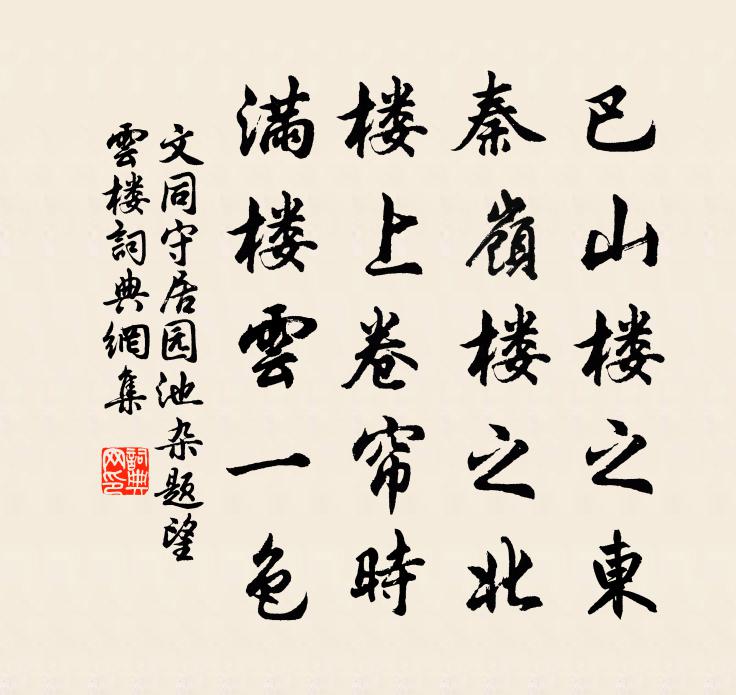 巴山楼之東
秦嶺楼之北
楼上卷帘時
滿楼雲一色
文同守居园池杂题望
雲楼詞典網集
詞典
网印